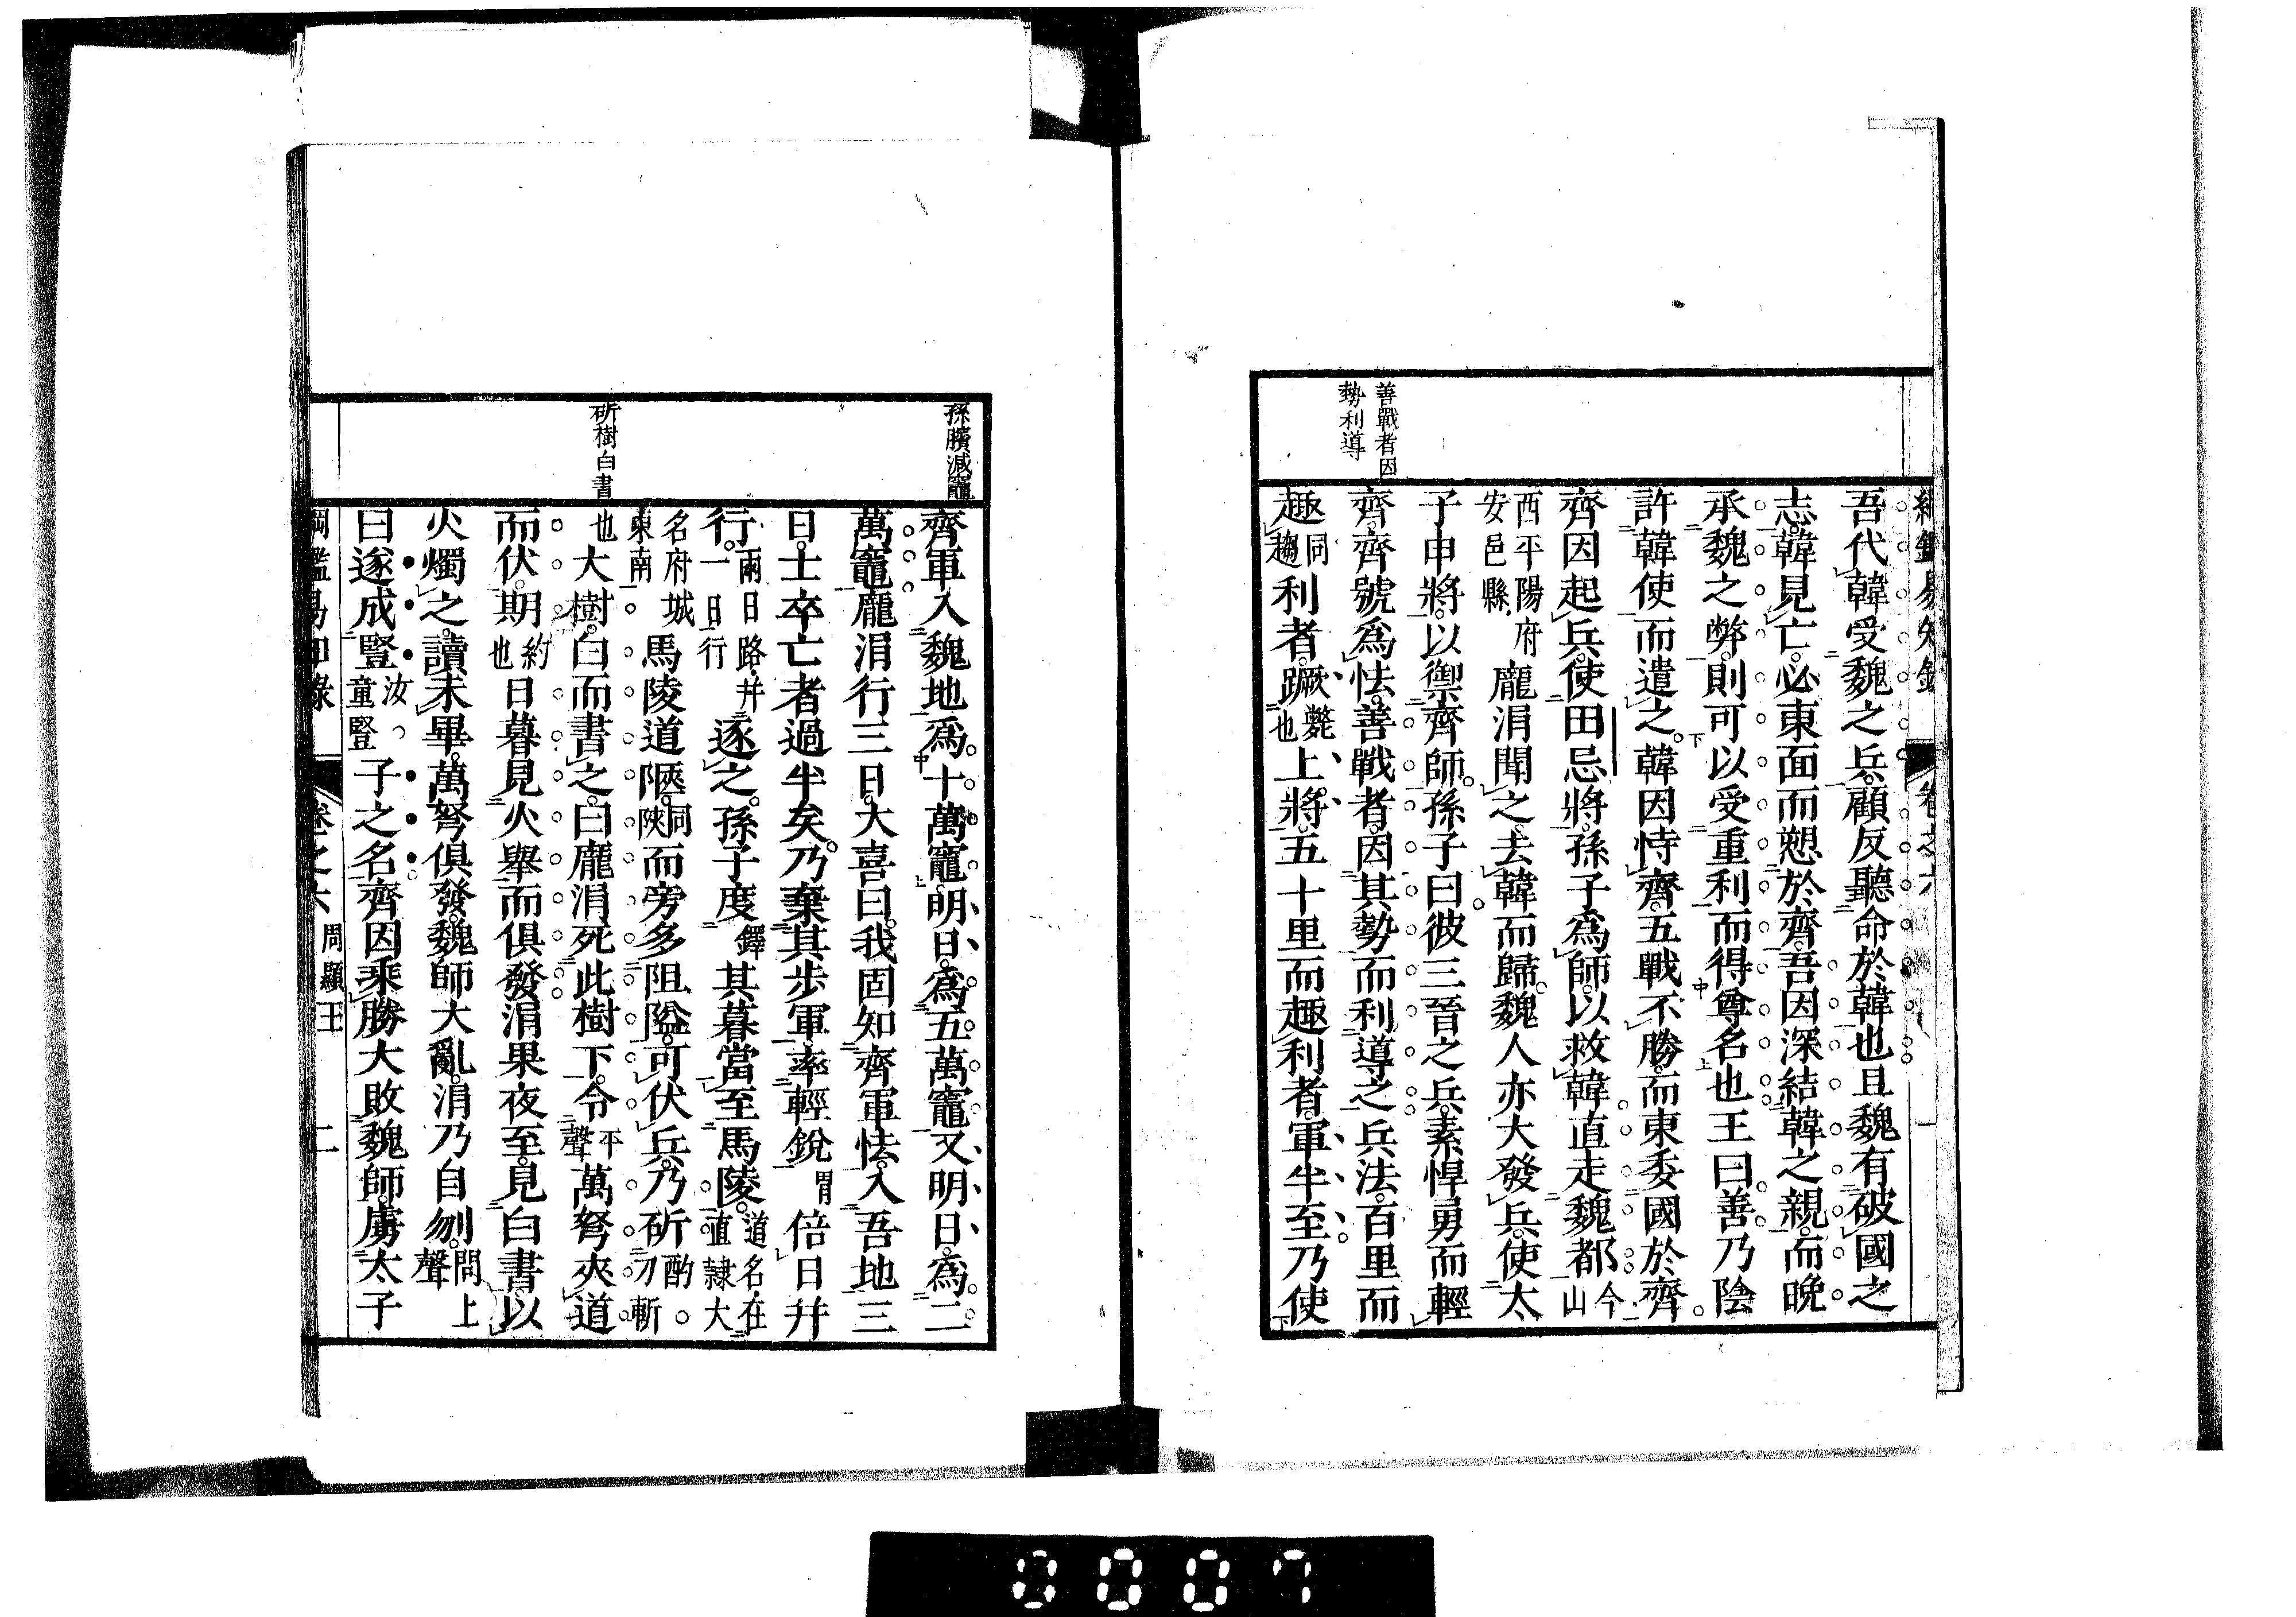 綱鑑易知錄 卷之六 一
善戰者因
勢利導
吾代韓受魏之兵顧反聽命於韓也且魏有破國之
志韓見亡必東面而愬於齊吾因深結韓之親而晚
承魏之弊則可以受重利而得尊名也王曰善乃陰
許韓使而遣之韓因恃齊五戰不勝而東委國於齊
齊因起兵使田忌將孫子為師以救韓直走魏都今山
西平陽府安邑縣龐涓聞之去韓而歸魏人亦大發兵使太
子申將以禦齊師孫子曰彼三晉之兵素悍勇而輕
齊齊號為怯善戰者因其勢而利導之兵法百里而
趣同趨利者蹶蹶斃也上將五十里而趣利者軍半至乃使
孫臏減竈
斫樹白書
齊軍入魏地為十萬竈明日為五萬竈又明日為二
萬竈龐涓行三日大喜曰我固知齊軍怯入吾地三
日士卒亡者過半矣乃棄其步軍率輕銳倍日并
行兩日路并一日行逐之孫子度鐸其暮當至馬陵道名在直隸大
名府城東南馬陵道陿同陝而旁多阻隘可伏兵乃斫酌刀斬
也大樹白而書之曰龐涓死此樹下令平聲萬弩夾道
而伏期約也日暮見火舉而俱發涓果夜至見白書以
火燭之讀未畢萬弩俱發魏師大亂涓乃自刎問上聲
曰遂成豎汝童豎子之名齊因乘勝大敗魏師虜太子
綱鑑易知錄 卷之六 周顯王 二
0007